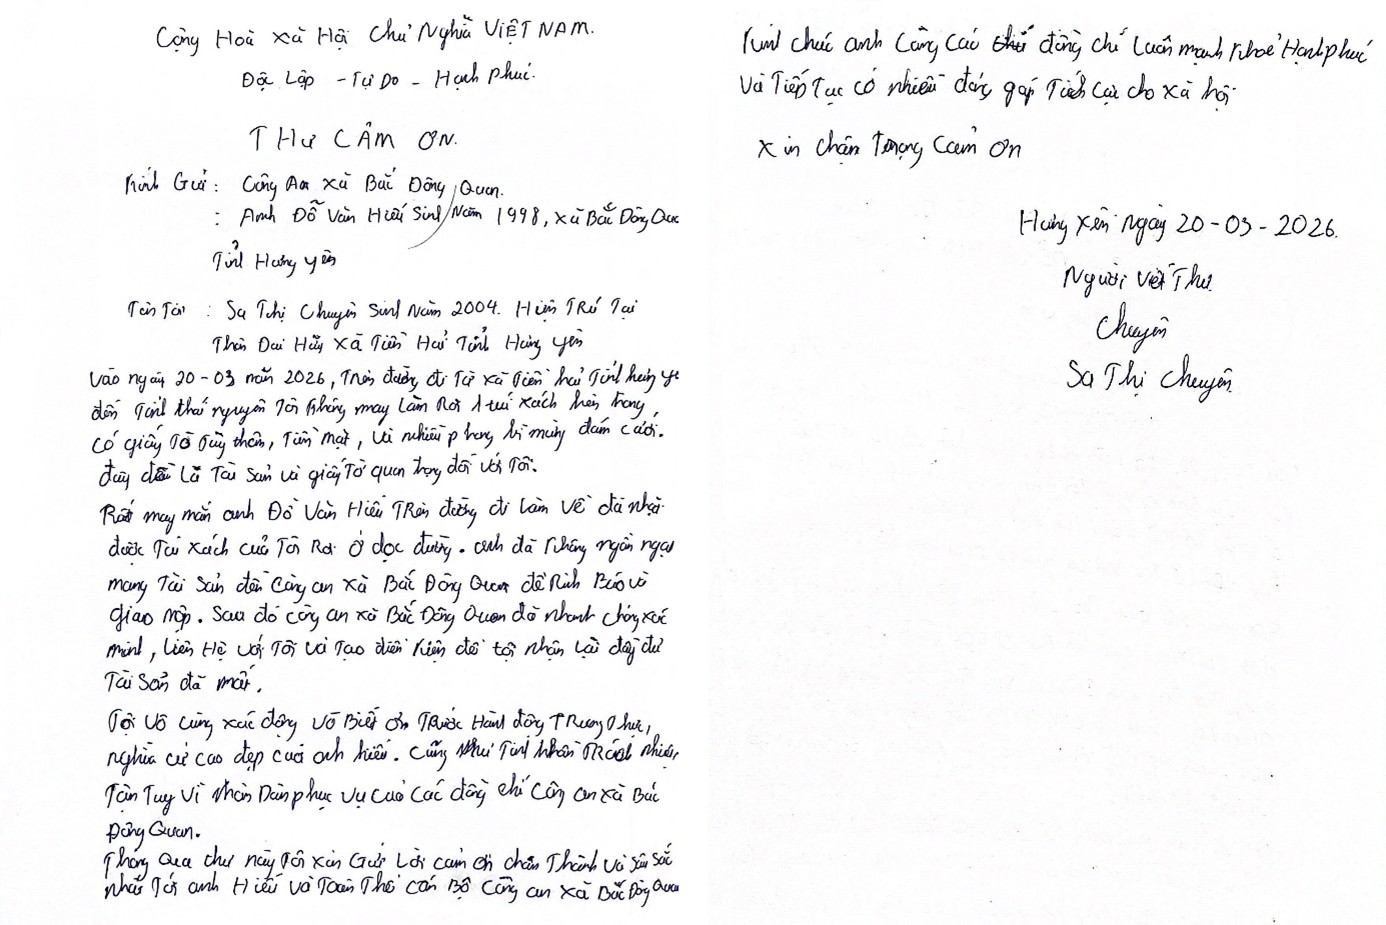 Cộng Hoà xã Hội chủ Nghĩa VIỆT NAM.
Độc Lập - Tự Do - Hạnh phúc.
THƯ CẢM ƠN.
Kính Gửi: Công An xã Bắc Đông Quan.
: Anh Đỗ Văn Hiếu Sinh Năm 1998, xã Bắc Đông Qua
Tỉnh Hưng yên
Tên Tôi : Sa Thị Chuyên Sinh Năm 2004. Hiện TRú Tại
Thôn Đại Hữu xã Tiền Hải Tỉnh Hưng yên
vào ngày 20-03 năm 2026, Trên đường đi Từ xã Tiền hải Tỉnh hưng yê
đến Tỉnh thái nguyên Tôi không may Làm Rơi 1 túi xách bên trong
có giấy Tờ Tùy thân, Tiền mặt, và nhiều phong bì mừng đám cưới.
đây đều Là Tài Sản và giấy Tờ quan trọng đối với Tôi.
Rất may mắn anh Đỗ Văn Hiếu TRên đường đi làm về đã nhặt
được Túi xách của Tôi Rơi ở dọc đường. anh đã không ngần ngại
mang Tài Sản đến Công an xã Bắc Đông Quan để Trình Báo và
giao nộp. Sau đó công an xã Bắc Đông Quan đã nhanh chóng xác
minh, Liên Hệ với Tôi và Tạo điều kiện để tôi nhận Lại đầy đủ
Tài Sản đã mất.
Tôi vô cùng xúc động và Biết ơn Trước Hành động TRung Thực,
nghĩa cử cao đẹp của anh hiếu. Cũng như Tinh thần TRách nhiệm,
Tận Tụy vì nhân Dân phục vụ của các đồng chí công an xã Bắc
Đông Quan.
Thông qua thư này Tôi xin Gửi Lời cảm ơn chân Thành và Sâu Sắc
nhất Tới anh Hiếu và Toàn Thể cán Bộ Công an xã Bắc Đông Qua
Kính chúc anh Cùng các đồng chí Luôn mạnh khoẻ Hạnh phúc
Và Tiếp Tục có nhiều đóng góp Tích cực cho xã hội
Xin chân Trọng Cảm ơn
Hưng yên Ngày 20-03-2026.
Người viết Thư
Chuyên
Sa Thị Chuyên